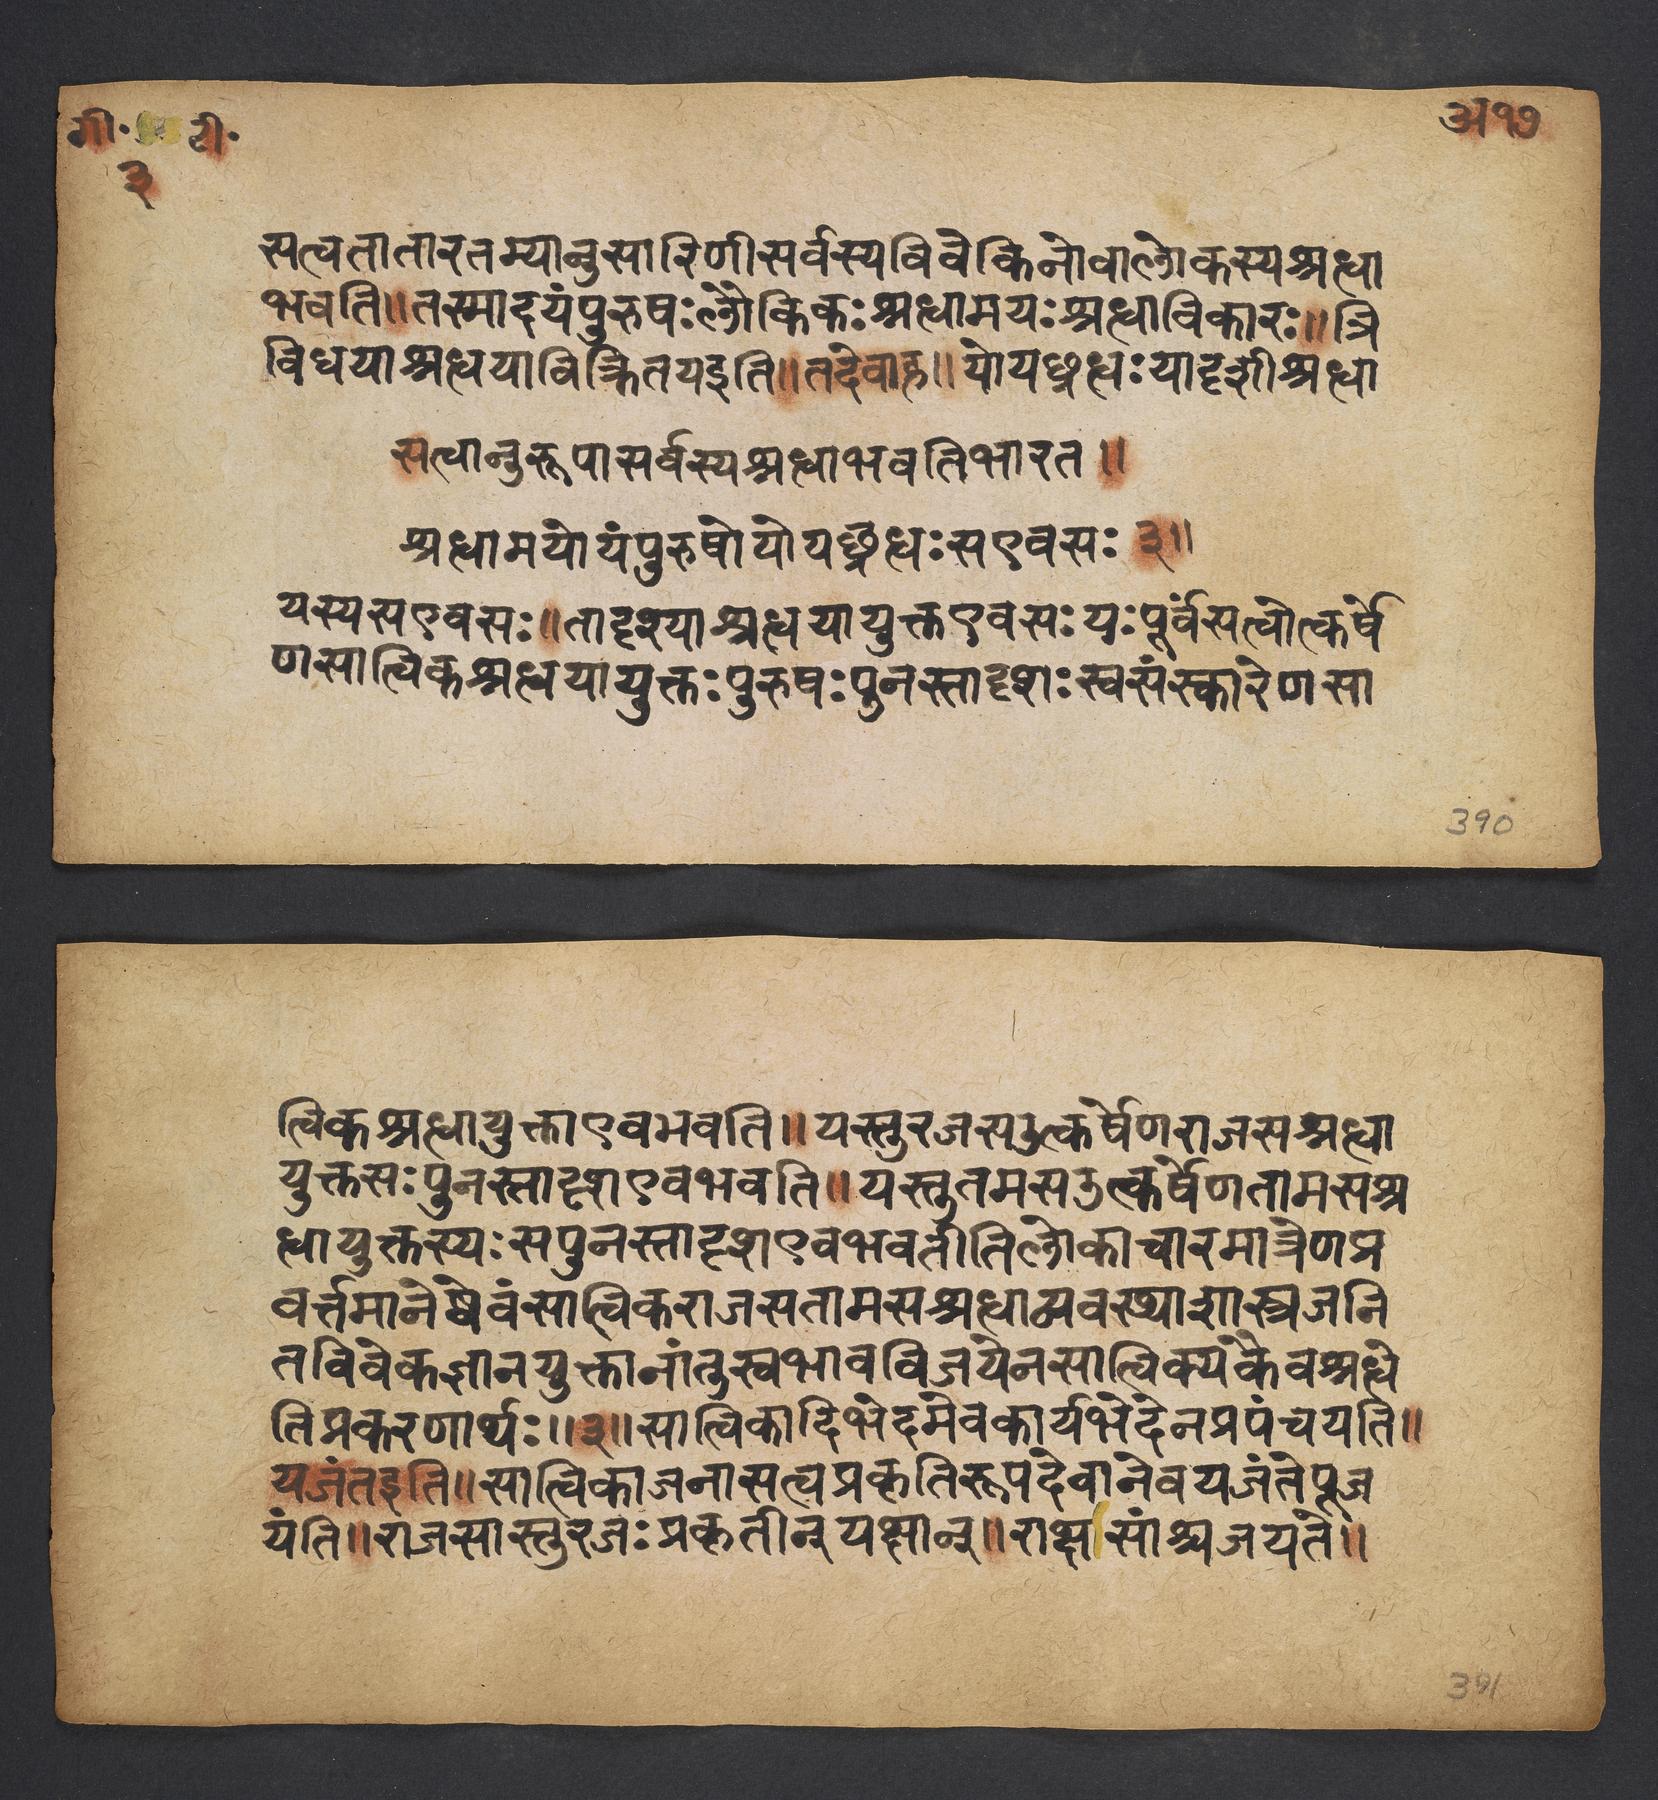 गी. टी.
३
अ१७
सत्वतातारतम्यानुसारिणीसर्वस्यविवेकिनोवालोकस्यश्रद्धा
भवति॥तस्मादयंपुरुषःलौकिकःश्रद्धामयःश्रद्धाविकारः॥त्रि
विधयाश्रद्धयाविक्रितयइति॥तदेवाह॥योयछ्रद्धःयादृशीश्रद्धा
सत्वानुरूपासर्वस्यश्रद्धाभवतिभारत॥
श्रद्धामयोयंपुरुषोयोयछ्रद्धःसएवसः३॥
यस्यसएवसः॥तादृश्याश्रद्धयायुक्तएवसःयःपूर्वंसत्वोत्कर्षे
णसात्विकश्रद्धयायुक्तःपुरुषःपुनस्तादृशःस्वसंस्कारेणसा
390
त्विकश्रद्धायुक्ताएवभवति॥यस्तुरजसउत्कर्षेणराजसश्रद्धा
युक्तसःपुनस्तादृशएवभवति॥यस्तुतमसउत्कर्षेणतामसश्र
द्धायुक्तस्यःसपुनस्तादृशएवभवतीतिलोकाचारमात्रेणप्र
वर्त्तमानेष्वेवंसात्विकराजसतामसश्रद्धाव्यवस्थाशास्त्रजनि
तविवेकज्ञानयुक्तानांतुस्वभावविजयेनसात्विक्यकैवश्रद्धे
तिप्रकरणार्थः॥३॥सात्विकादिभेदमेवकार्यभेदेनप्रपंचयति॥
यजंतइति॥सात्विकाजनासत्वप्रकृतिरूपदेवानेवयजंतेपूज
यंति॥राजसास्तुरजःप्रकृतीन्यक्षान्॥राक्षसांश्चजयंते॥
391